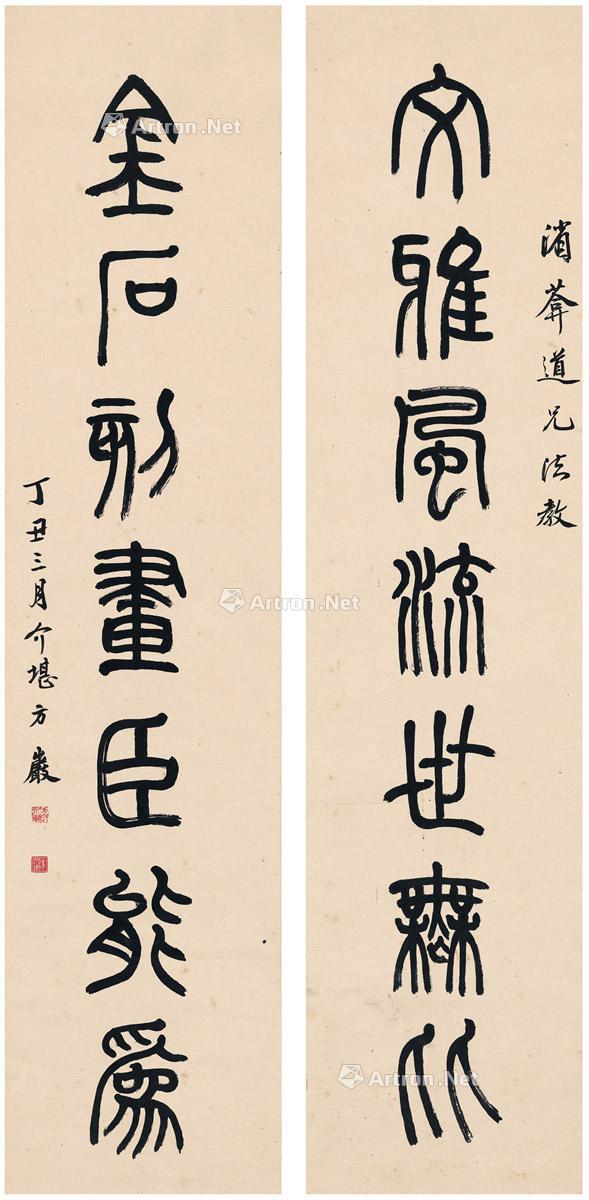 消葊道兄法教
文雅風流世無比
金石刻畫臣能爲
丁丑三月介堪方巖
Artron.Net
Artron.Net
Artron.Net
Artron.Net